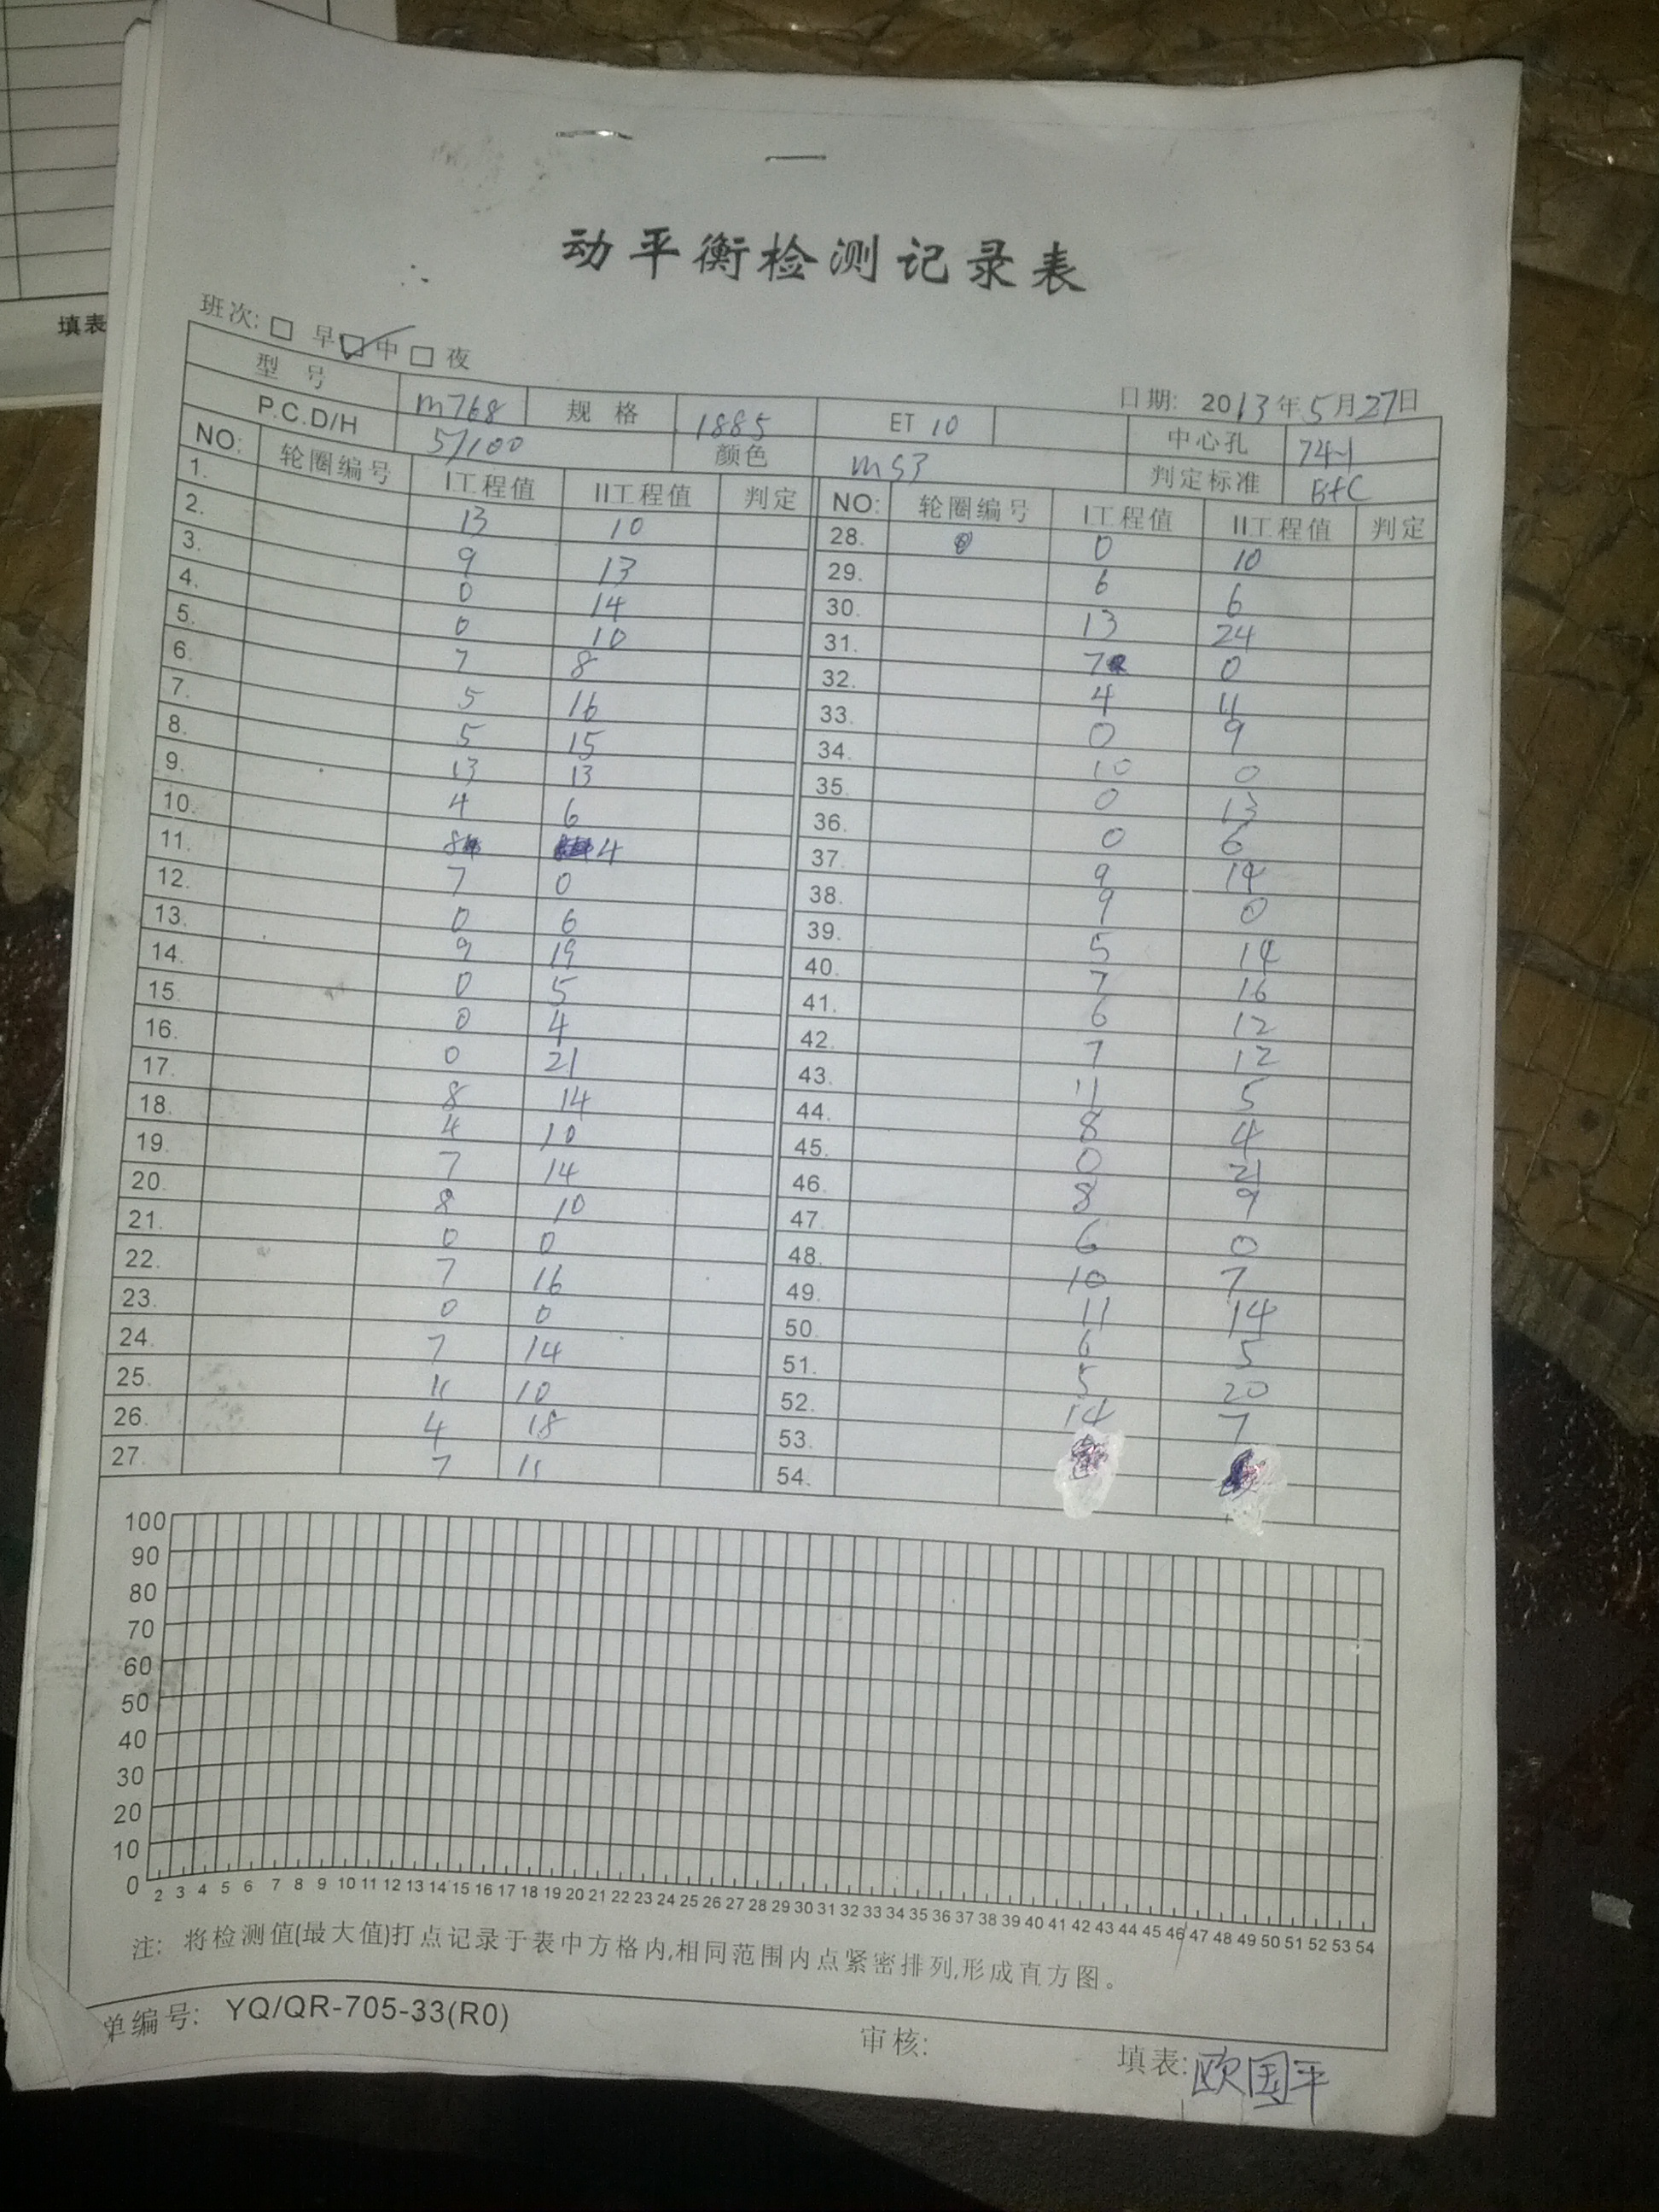 填表
动平衡检测记录表
班次: 早 中 夜
日期: 2013年5月27日
型 号 m768 规 格 1885 ET 10 中心孔 74.1
P.C.D/H 5/100 颜色 MS3 判定标准
NO: 轮圈编号 I工程值 II工程值 判定 NO: 轮圈编号 I工程值 II工程值 判定
1. 13 10 28. 0 10
2. 9 13 29. 6 6
3. 0 14 30. 13 24
4. 0 10 31. 7 0
5. 7 8 32. 4 4
6. 5 16 33. 0 9
7. 5 15 34. 10 0
8. 13 13 35. 0 13
9. 4 6 36. 0 6
10. 8 4 37. 9 14
11. 7 0 38. 9 0
12. 0 6 39. 5 14
13. 9 19 40. 7 16
14. 0 5 41. 6 12
15. 0 4 42. 7 12
16. 0 21 43. 11 5
17. 8 14 44. 8 4
18. 4 10 45. 0 21
19. 7 14 46. 8 9
20. 8 10 47. 6 0
21. 0 0 48. 10 7
22. 7 16 49. 11 14
23. 0 0 50. 6 5
24. 7 14 51. 5 20
25. 11 10 52. 14 7
26. 4 18 53.
27. 7 11 54.
100
90
80
70
60
50
40
30
20
10
0
2 3 4 5 6 7 8 9 10 11 12 13 14 15 16 17 18 19 20 21 22 23 24 25 26 27 28 29 30 31 32 33 34 35 36 37 38 39 40 41 42 43 44 45 46 47 48 49 50 51 52 53 54
注: 将检测值(最大值)打点记录于表中方格内,相同范围内点紧密排列,形成直方图。
单编号: YQ/QR-705-33(R0)
审核: 填表: 欧国平